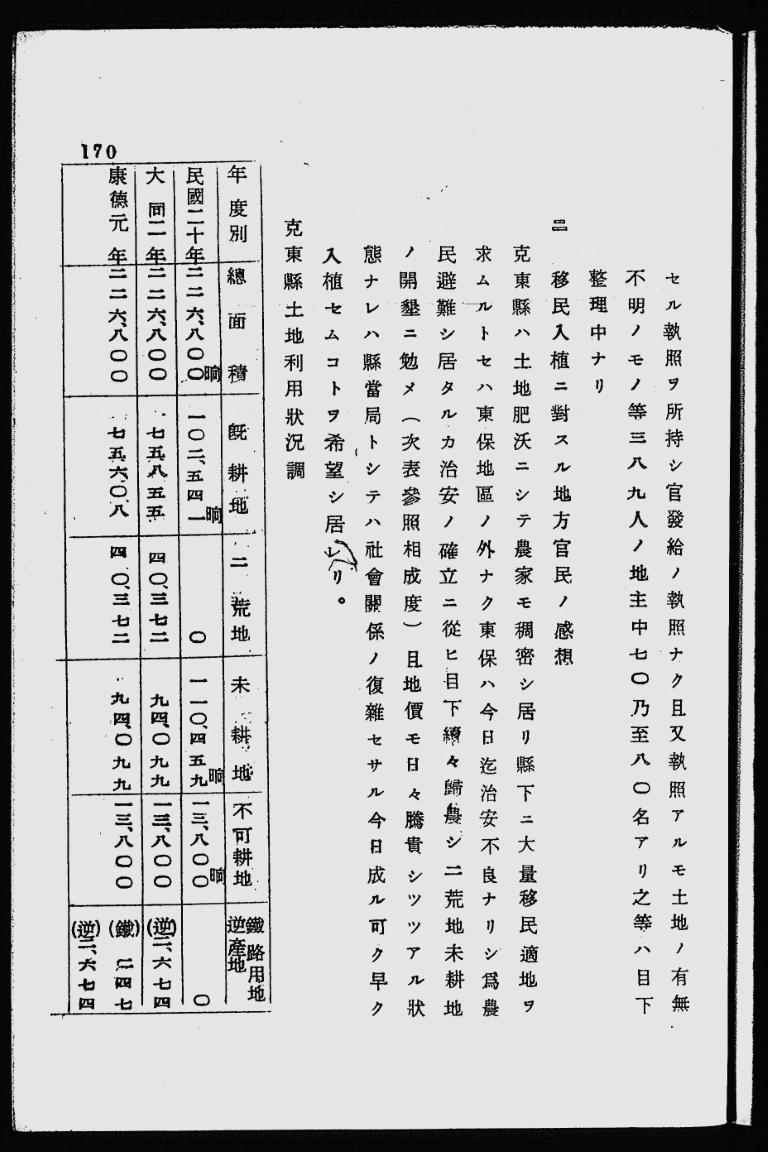 セル執照ヲ所持シ官發給ノ執照ナク且又執照アルモ土地ノ有無
不明ノモノ等三八九人ノ地主中七〇乃至八〇名アリ之等ハ目下
整理中ナリ
二　移民入植ニ對スル地方官民ノ感想
克東縣ハ土地肥沃ニシテ農家モ稠密シ居リ縣下ニ大量移民適地ヲ
求ムルトセハ東保地區ノ外ナク東保ハ今日迄治安不良ナリシ爲農
民避難シ居タルカ治安ノ確立ニ從ヒ目下續々歸農シ二荒地未耕地
ノ開墾ニ勉メ（次表參照相成度）且地價モ日々騰貴シツツアル狀
態ナレハ縣當局トシテハ社會關係ノ復雜セサル今日成ル可ク早ク
入植セムコトヲ希望シ居レリ。
克東縣土地利用狀況調
年度別　總面積　既耕地　二荒地　未耕地　不可耕地　鐵路用地 逆產地
民國二十年　二二六、八〇〇晌　一〇二、五四一晌　〇　一一〇、四五九晌　一三、八〇〇晌　〇
大同二年　二二六、八〇〇　七五、八五五　四〇、三七二　九四、〇九九　一三、八〇〇　(逆)二、六七四
康德元年　二二六、八〇〇　七五、六〇八　四〇、三七二　九四、〇九九　一三、八〇〇　(鐵)二四七　(逆)二、六七四
170